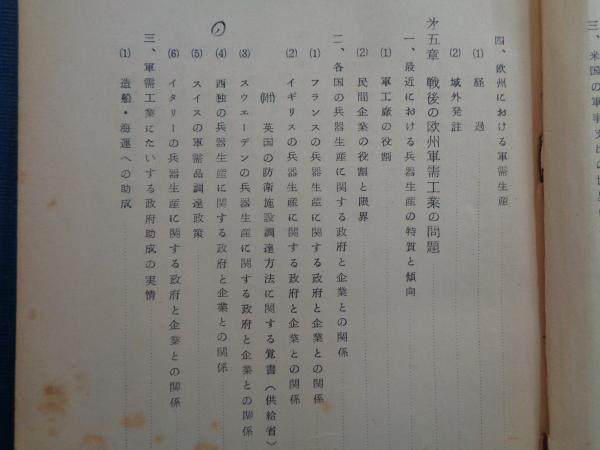 三、米国の軍事支出の
四、欧州における軍需生産
⑴ 経過
⑵ 域外発註
第五章 戦後の欧州軍需工業の問題
一、最近における兵器生産の特質と傾向
⑴ 軍工廠の役割
⑵ 民間企業の役割と限界
二、各国の兵器生産に関する政府と企業との関係
⑴ フランスの兵器生産に関する政府と企業との関係
⑵ イギリスの兵器生産に関する政府と企業との関係
㈣ 英国の防衛施設調達方法に関する覚書(供給省)
⑶ スウエーデンの兵器生産に関する政府と企業との関係
⑷ 西独の兵器生産に関する政府と企業との関係
⑸ スイスの軍需品調達政策
⑹ イタリーの兵器生産に関する政府と企業との関係
三、軍需工業にたいする政府助成の実情
⑴ 造船・海運への助成